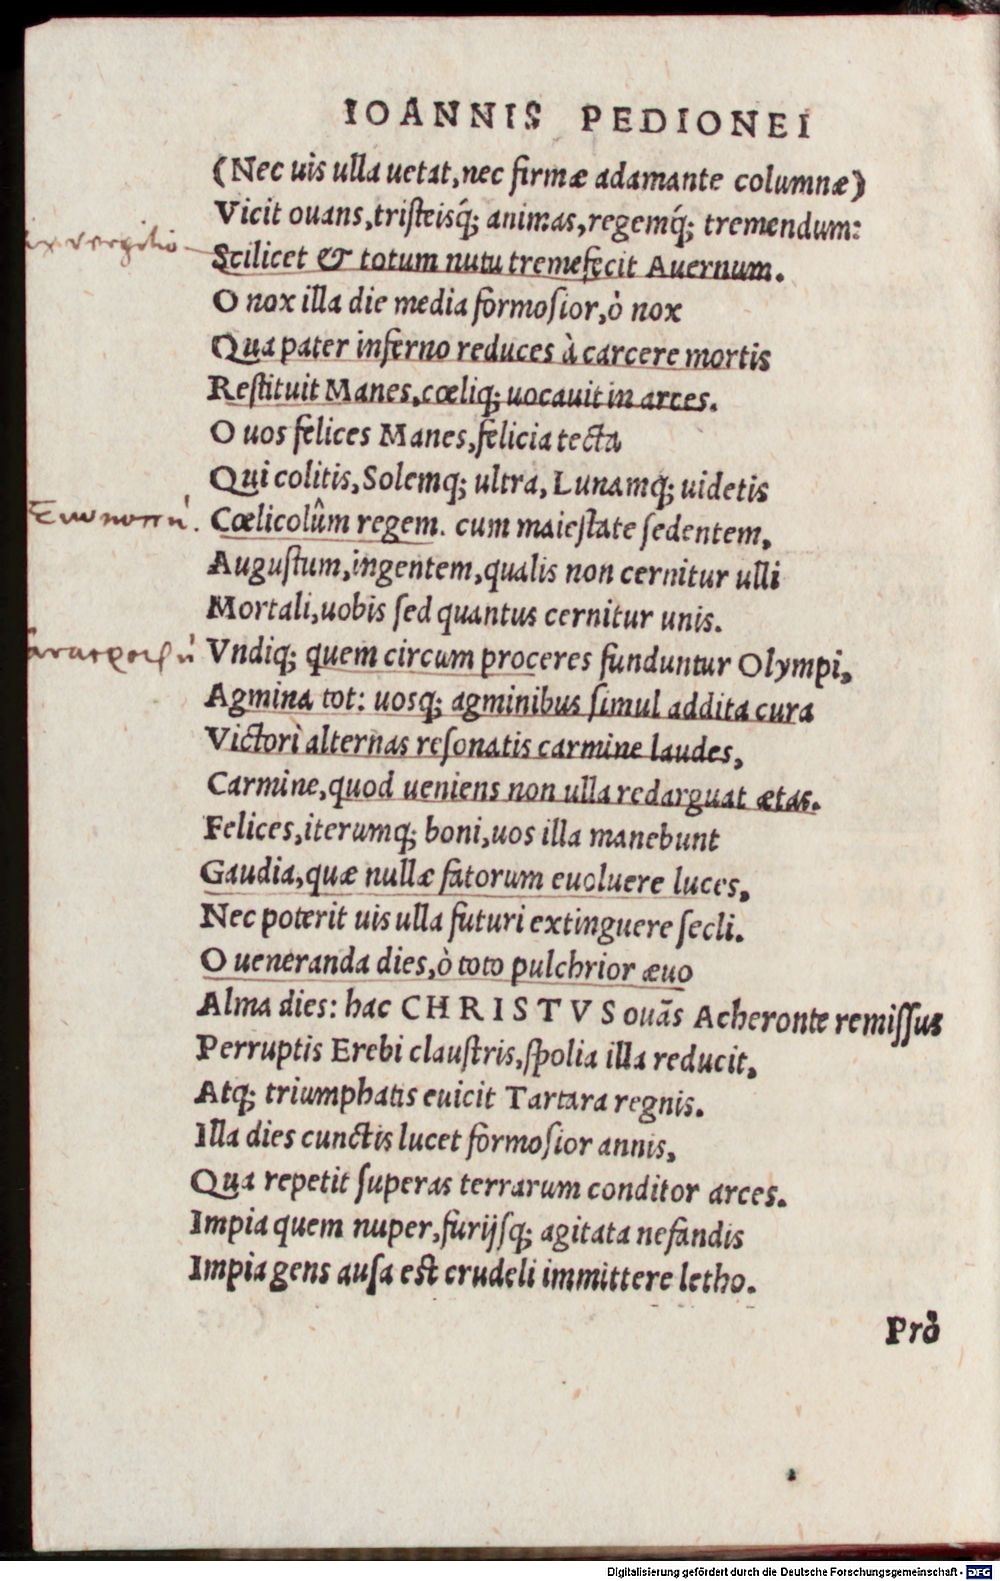 IOANNIS PEDIONEI
(Nec uis ulla uetat, nec firmæ adamante columnæ)
Vicit ouans, tristeisq́; animas, regemq́; tremendum:
ex vergilio
Scilicet & totum nutu tremefecit Auernum.
O nox illa die media formosior, ò nox
Qua pater inferno reduces à carcere mortis
Restituit Manes, cœliq; uocauit in arces.
O uos felices Manes, felicia tecta
Qui colitis, Solemq; ultra, Lunamq; uidetis
Cœlicolûm regem. cum maiestate sedentem,
Augustum, ingentem, qualis non cernitur ulli
Mortali, uobis sed quantus cernitur unis.
Vndiq; quem circum proceres funduntur Olympi,
Agmina tot: uosq; agminibus simul addita cura
Victori alternas resonatis carmine laudes,
Carmine, quod ueniens non ulla redarguat ætas.
Felices, iterumq; boni, uos illa manebunt
Gaudia, quæ nullæ fatorum euoluere luces,
Nec poterit uis ulla futuri extinguere secli.
O ueneranda dies, ò toto pulchrior æuo
Alma dies: hac CHRISTVS ouãs Acheronte remissus
Perruptis Erebi claustris, spolia illa reducit,
Atq; triumphatis euicit Tartara regnis.
Illa dies cunctis lucet formosior annis,
Qua repetit superas terrarum conditor arces.
Impia quem nuper, furijsq; agitata nefandis
Impia gens ausa est crudeli immittere letho.
Prò
Digitalisierung gefördert durch die Deutsche Forschungsgemeinschaft - DFG